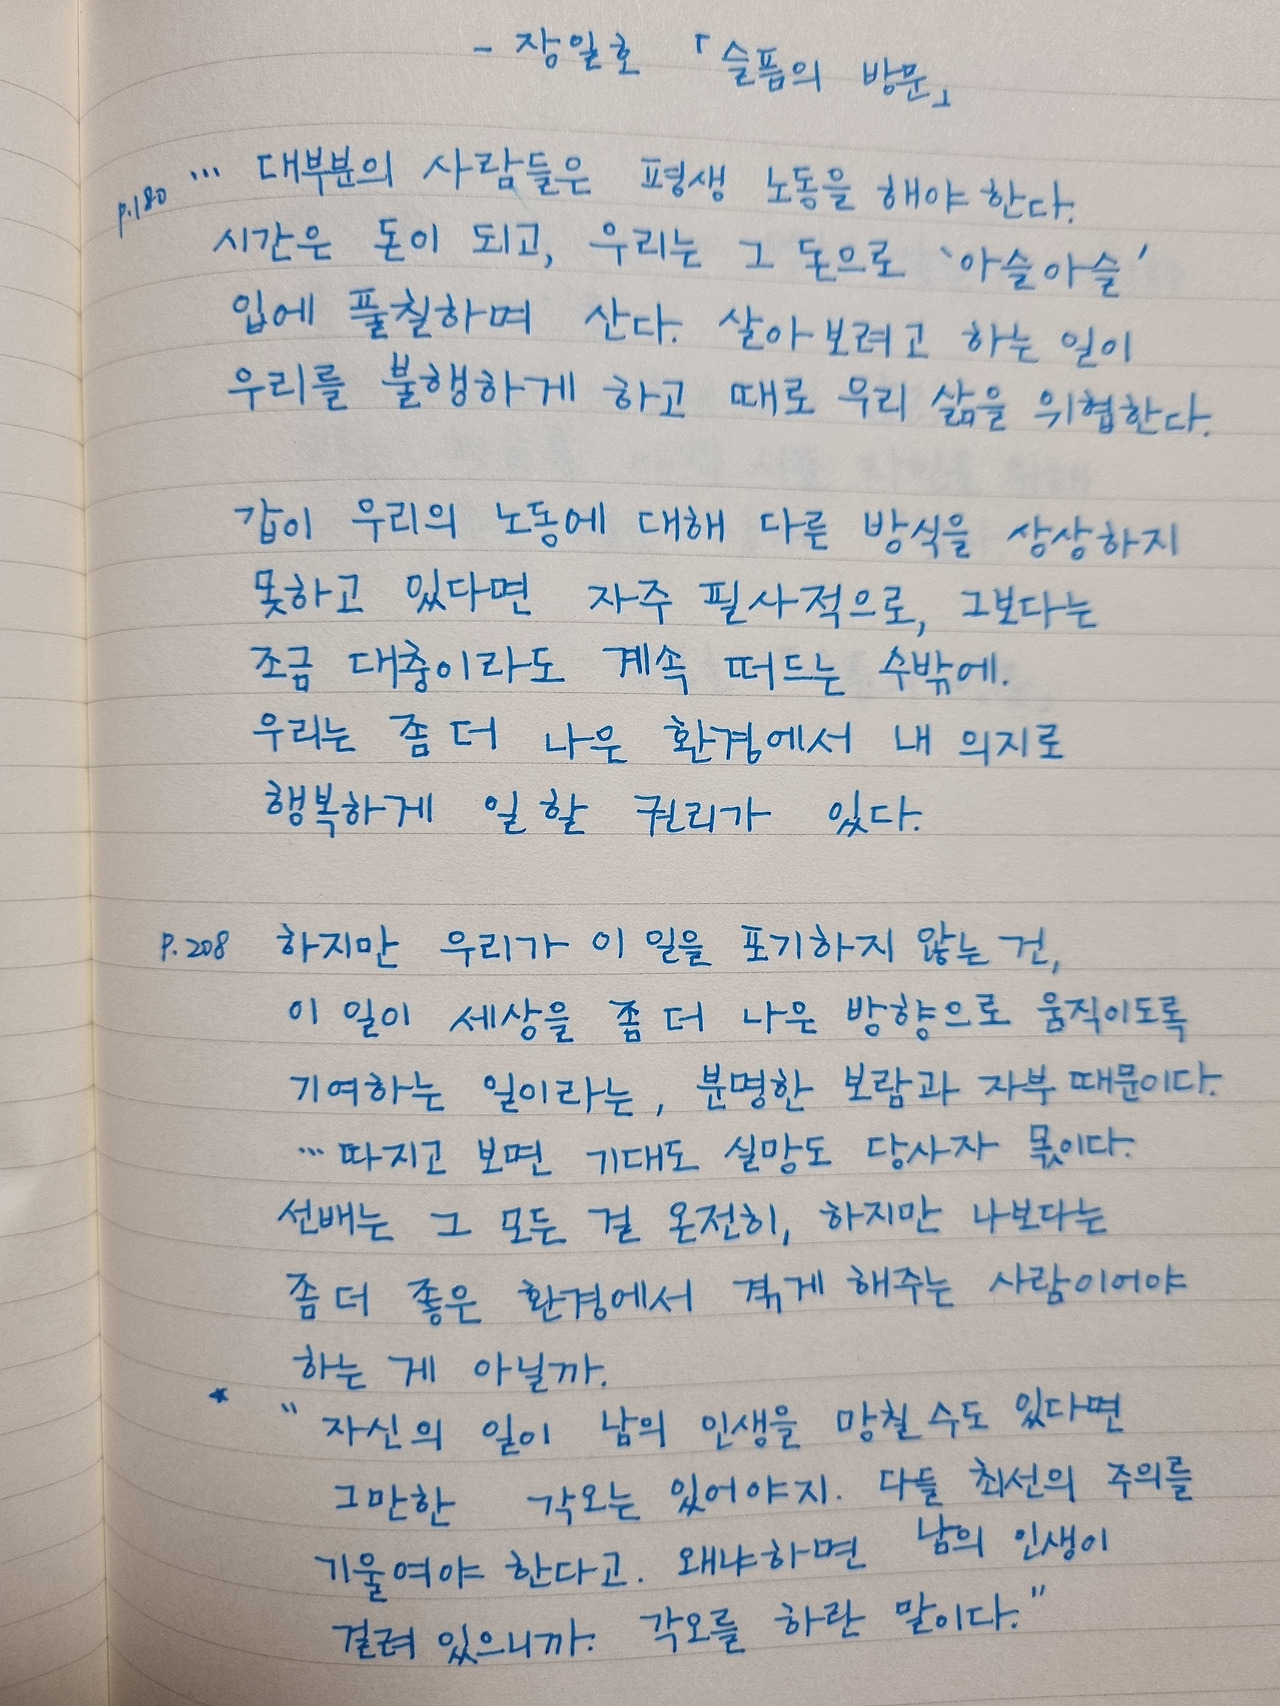 - 장일호 「슬픔의 방문」
p.180 … 대부분의 사람들은 평생 노동을 해야 한다.
시간은 돈이 되고, 우리는 그 돈으로 '아슬아슬'
입에 풀칠하며 산다. 살아보려고 하는 일이
우리를 불행하게 하고 때로 우리 삶을 위협한다.
갑이 우리의 노동에 대해 다른 방식을 상상하지
못하고 있다면 자주 필사적으로, 그보다는
조금 대충이라도 계속 떠드는 수밖에.
우리는 좀 더 나은 환경에서 내 의지로
행복하게 일 할 권리가 있다.
P.208 하지만 우리가 이 일을 포기하지 않는 건,
이 일이 세상을 좀 더 나은 방향으로 움직이도록
기여하는 일이라는, 분명한 보람과 자부 때문이다.
…따지고 보면 기대도 실망도 당사자 몫이다.
선배는 그 모든 걸 온전히, 하지만 나보다는
좀 더 좋은 환경에서 겪게 해주는 사람이어야
하는 게 아닐까.
★ "자신의 일이 남의 인생을 망칠 수도 있다면
그만한 각오는 있어야지. 다들 최선의 주의를
기울여야 한다고. 왜냐하면 남의 인생이
걸려 있으니까. 각오를 하란 말이다."